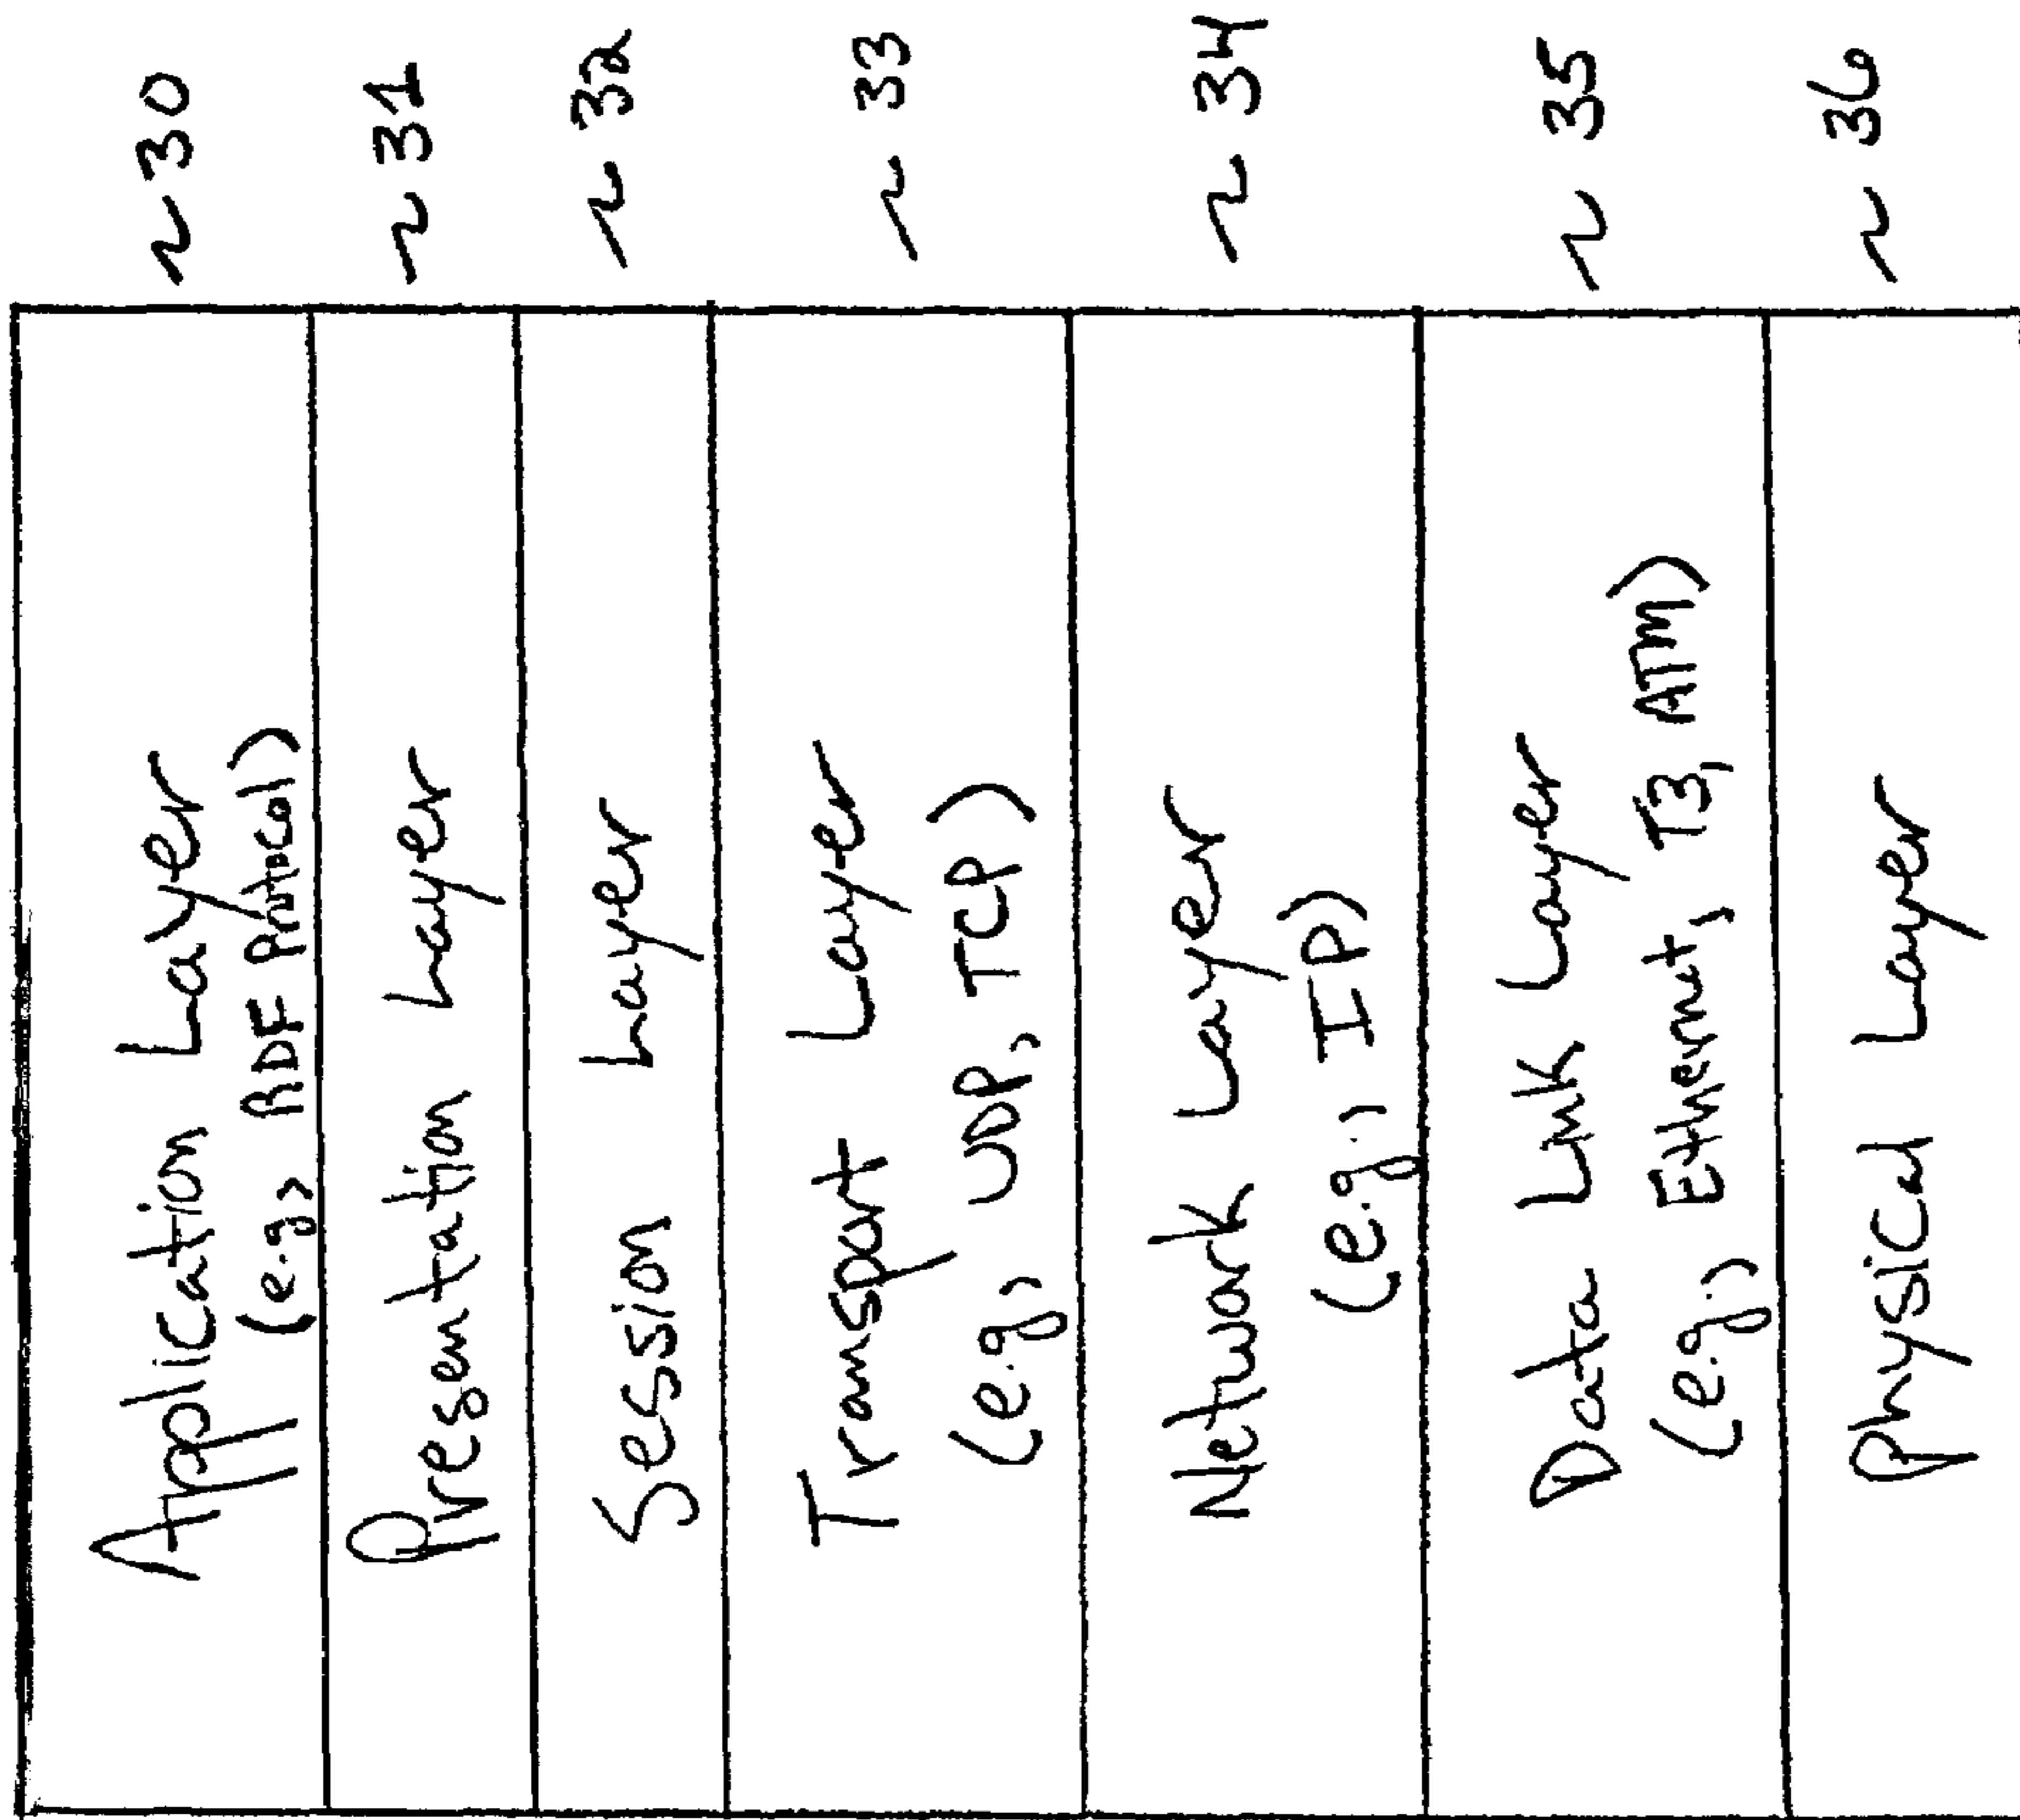 Application Layer ~30
(e.g., RDF Protocol)
Presentation Layer ~31
Session Layer ~32
Transport Layer ~33
(e.g., UDP, TCP)
Network Layer ~34
(e.g., IP)
Data Link Layer ~35
(e.g., Ethernet, T3, ATM)
Physical Layer ~36